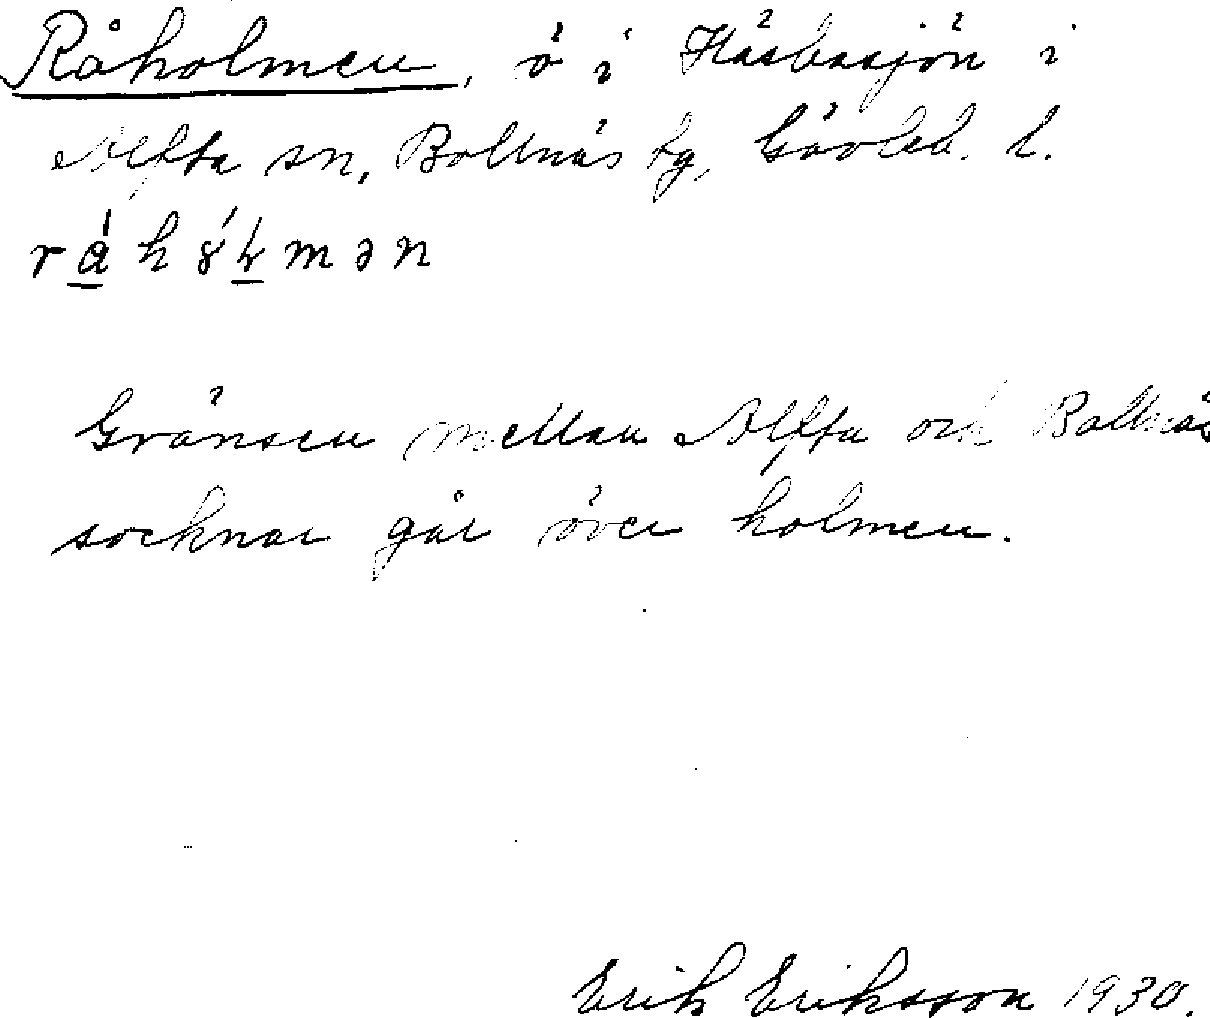 Råholmen, ö i Häsbosjön i
Alfta sn, Bollnäs tg, Gävleb. l.
Gränsen mellan Alfta och Bollnäs
socknar går över holmen.
Erik Eriksson 1930.